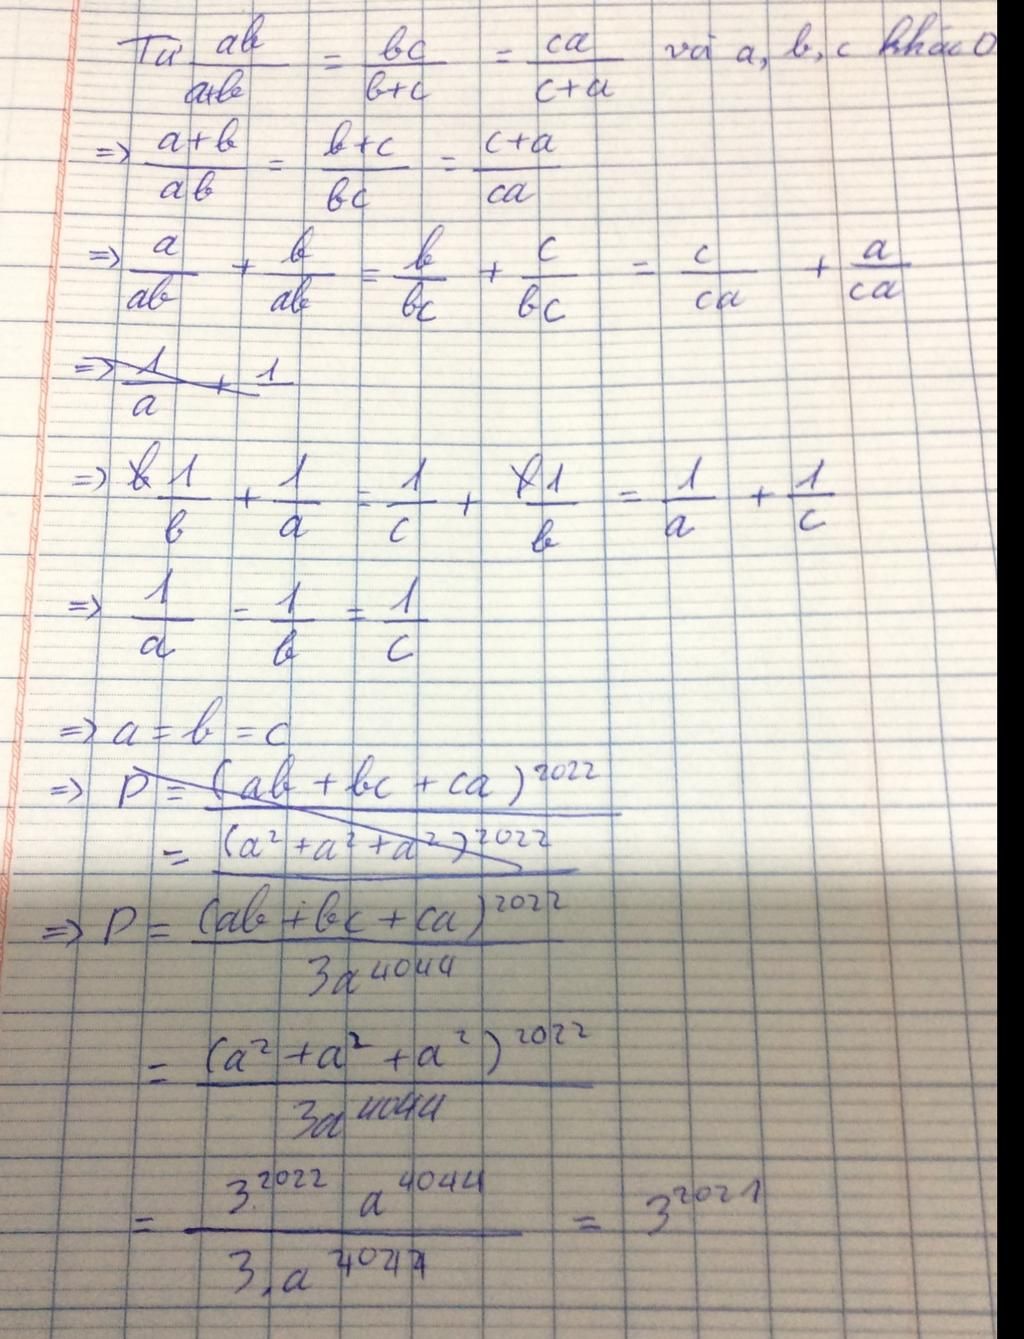 Từ ab/a+b = bc/b+c = ca/c+a và a, b, c khác 0
=> a+b/ab = b+c/bc = c+a/ca
=> a/ab + b/ab = b/bc + c/bc = c/ca + a/ca
=> 1/a + 1
=> 1/b + 1/a = 1/c + 1/b = 1/a + 1/c
=> 1/a = 1/b = 1/c
=> a = b = c
=> P = (ab + bc + ca)^2022
= (a² + a² + a²)^2022
=> P = (ab + bc + ca)^2022 / 3a^4044
= (a² + a² + a²)^2022 / 3a^4044
= 3^2022 a^4044 / 3.a^4044 = 3^2021